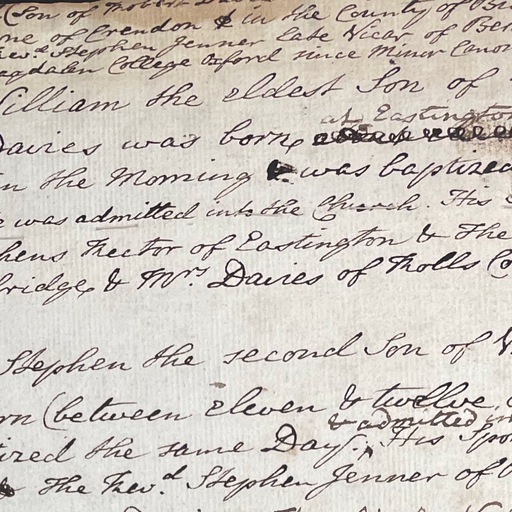 (Son of Robert Davies
ne of Crendon & in the County of B
Rev.d Stephen Jenner late Vicar of Ber
agdalen College Oxford since Minor Canon
William the eldest Son of
at Eastington
Davies was born
in the Morning & was baptized
e was admitted into the Church. His
hens Rector of Eastington & The
bridge, & Mrs. Davies of Rolls Co
Stephen the second Son of W
rn (between eleven & twelve,
& admitted in
ized the same Day. His Spon
& The Rev.d Stephen Jenner of